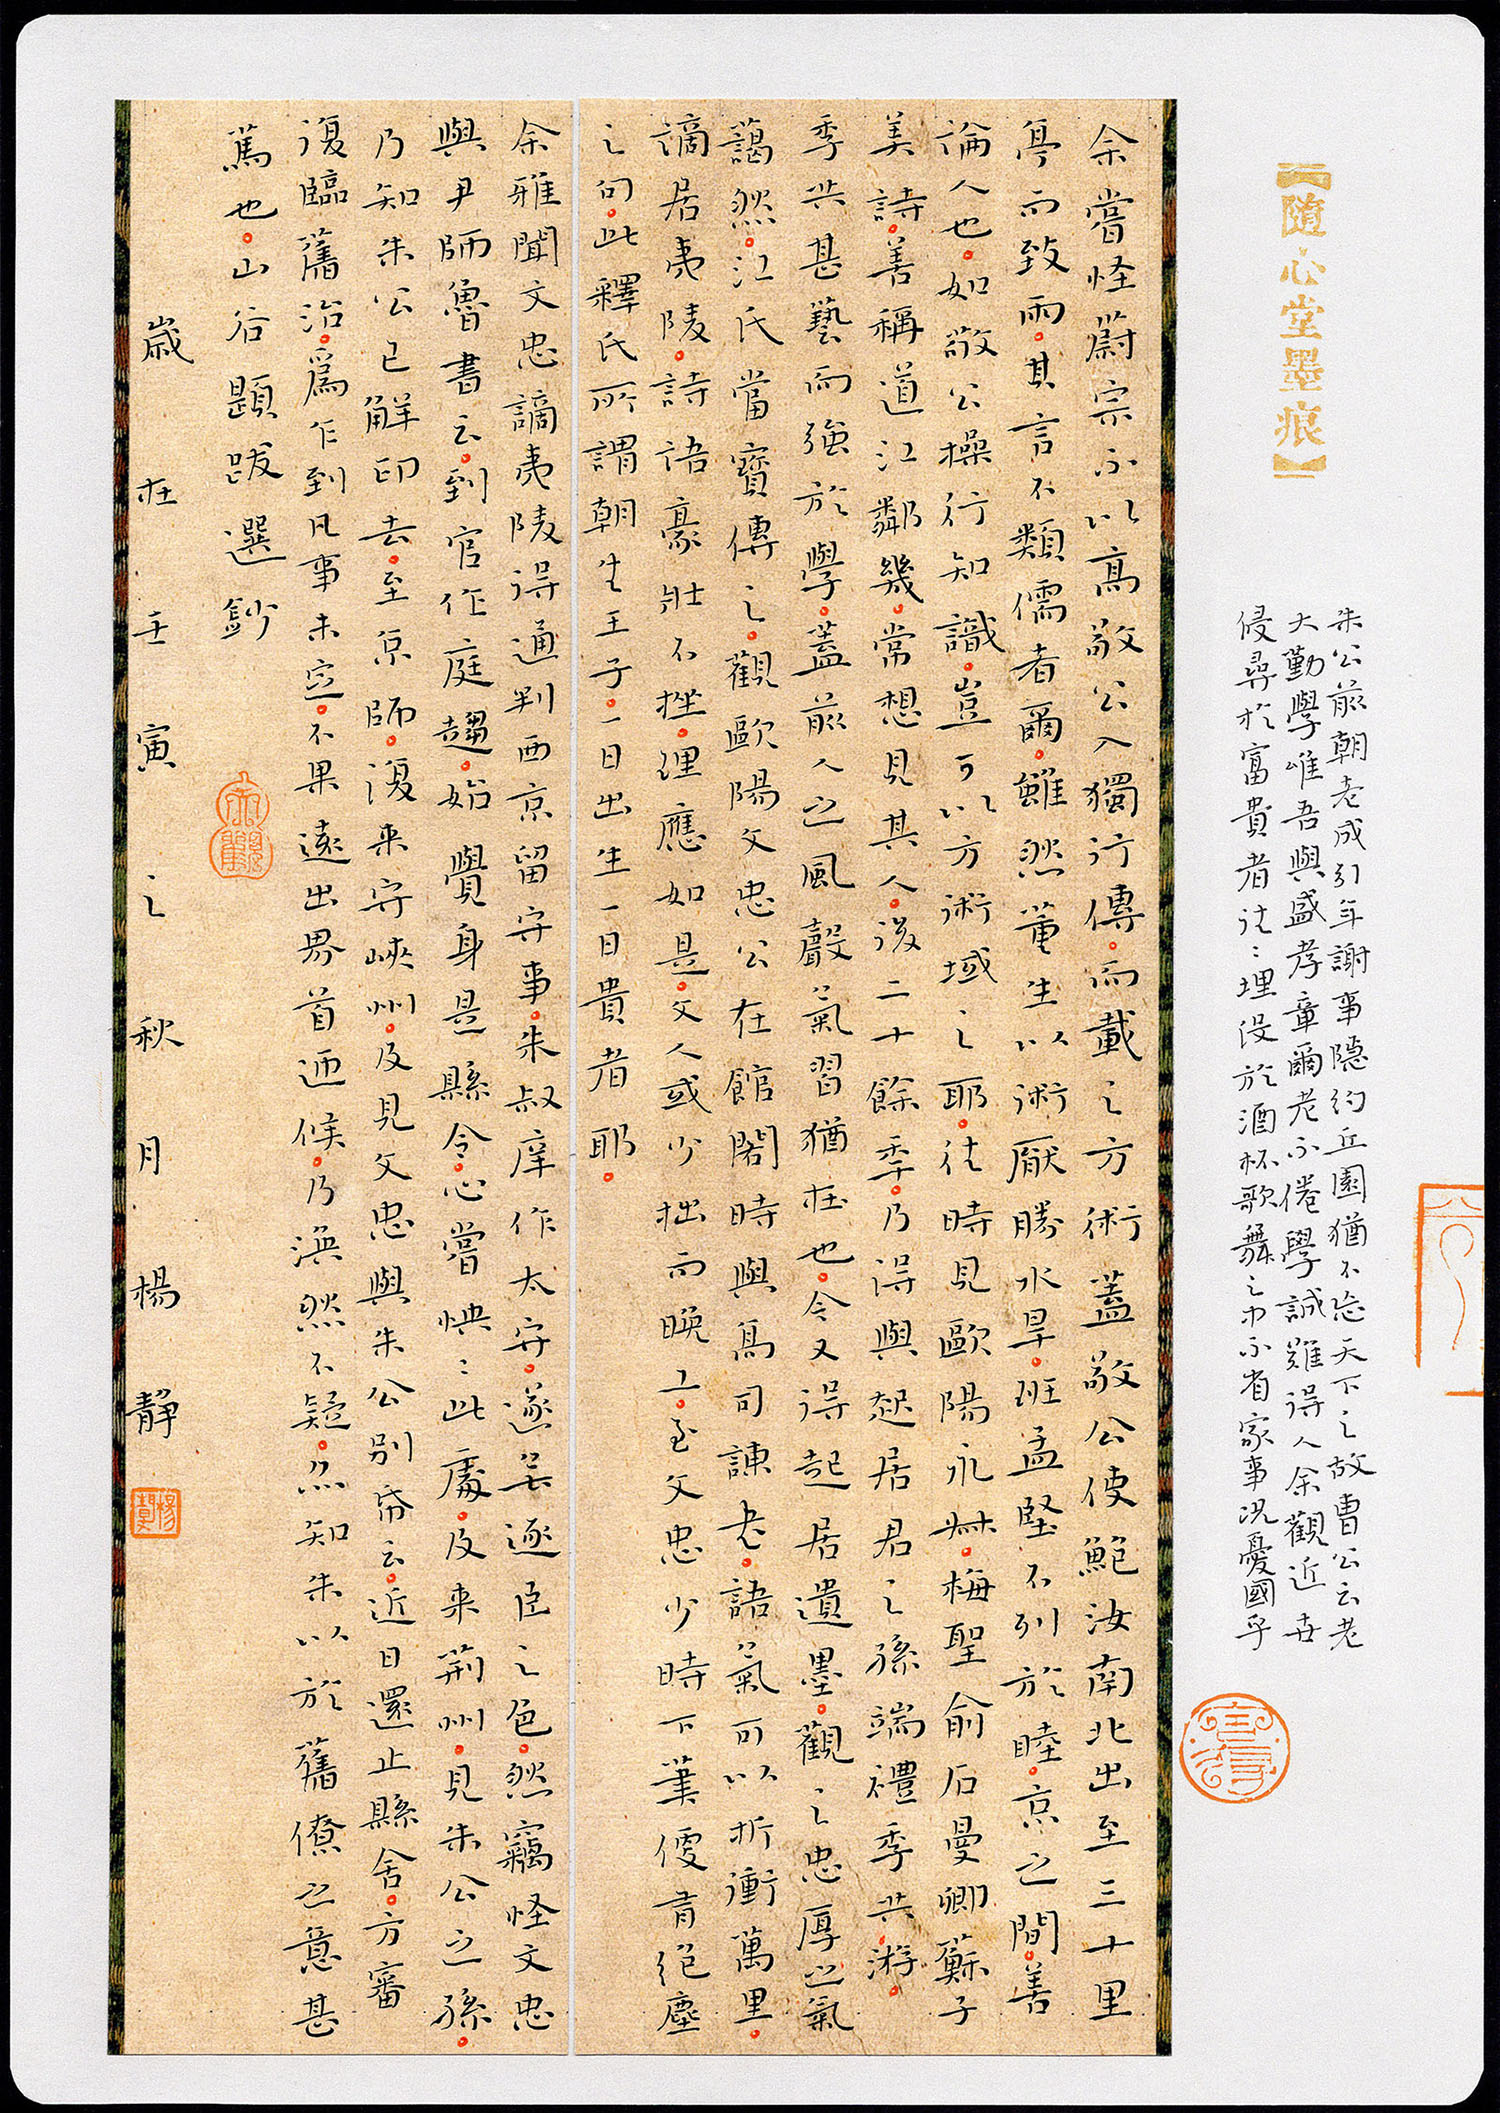 【随心堂墨痕】
朱公前朝老成引年謝事隱約丘園猶不忘天下之故曹公云老
大勤學唯吾與盛孝章爾老不倦學誠難得人余觀近世
侵尋於富貴者往〻埋沒於酒杯歌舞之中不省家事況憂國乎
余嘗怪蔚宗不以高敬公入獨行傳而載之方術蓋敬公使鮑汝南北出至三十里
亭而致雨其言不類儒者爾雖然董生以術厭勝水旱班孟堅不列於眭京之間善
論人也如敬公操行知識豈可以方術域之耶往時見歐陽永叔梅聖俞石曼卿蘇子
美詩善稱道江鄰幾常想見其人後二十餘季乃得與起居君之孫端禮季共游
季共甚藝而強於學蓋前人之風聲氣習猶在也今又得起居遺墨觀之忠厚之氣
藹然江氏當寶傳之觀歐陽文忠公在館閣時與高司諫書語氣可以折衝萬里
謫居夷陵詩語豪壯不挫理應如是文人或少拙而晚工至文忠少時下筆便有絕塵
之句此釋氏所謂朝生王子一日出生一日貴者耶
余雅聞文忠謫夷陵得通判西京留守事朱叔庠作太守遂無逐臣之色然竊怪文忠
與尹師魯書云到官作庭趨始覺身是縣令心嘗怏〻此處及来荊州見朱公之孫
乃知朱公已解印去至京師復来守峽州及見文忠與朱公別帋云近日還止縣舍方審
復臨舊治為乍到凡事未定不果遠出界首迎候乃渙然不疑亦知朱以於舊僚之意甚
篤也山谷題跋選鈔
歲在壬寅之秋月楊靜